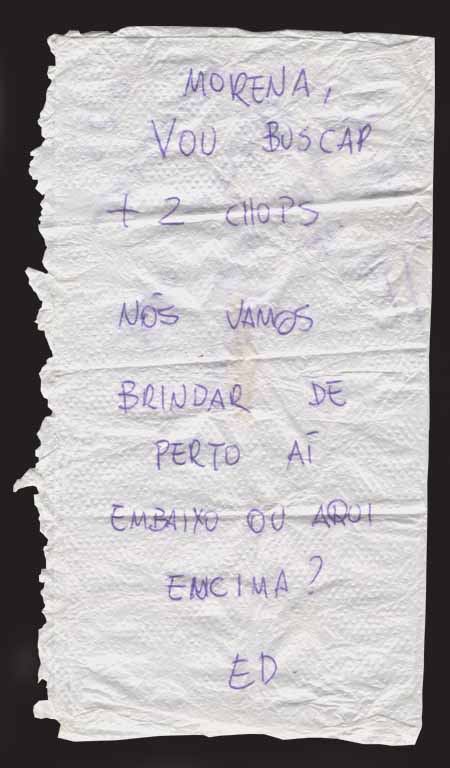 MORENA,
VOU BUSCAR
+ 2 CHOPS
NÓS VAMOS
BRINDAR DE
PERTO AÍ
EMBAIXO OU AQUI
ENCIMA?
ED